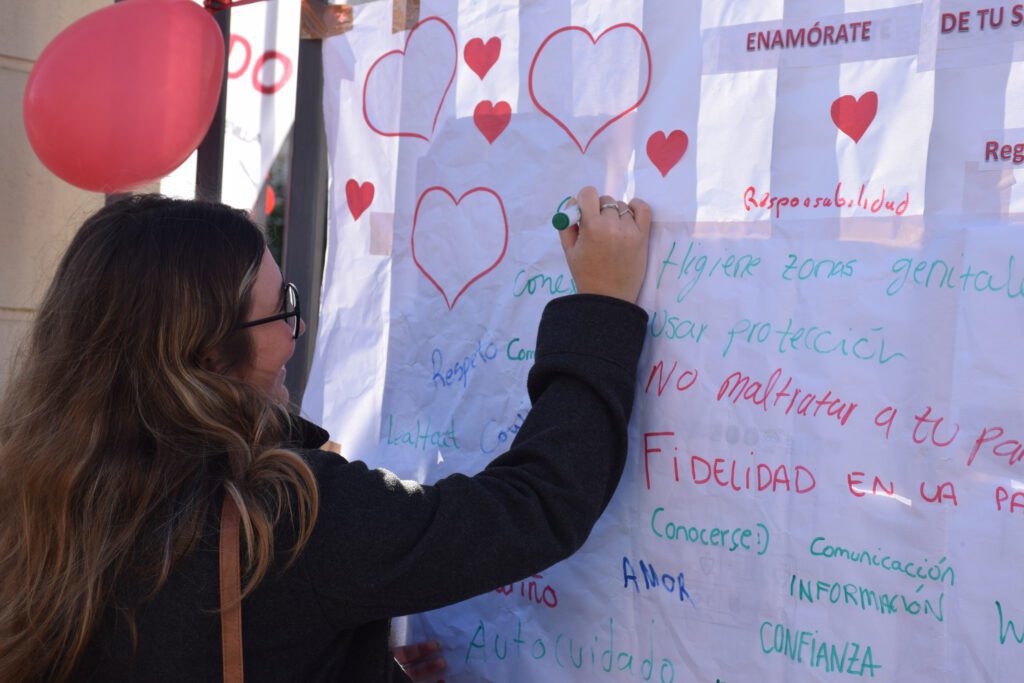 DO
ENAMÓRATE
DE TU S
Reg
Responsabilidad
Higiene zonas genitale
Usar protección
No maltratar a tu par
Respeto
Lealtad
FIDELIDAD EN LA PA
Conocerse :)
Comunicación
AMOR
INFORMACIÓN
CONFIANZA
Autocuidado